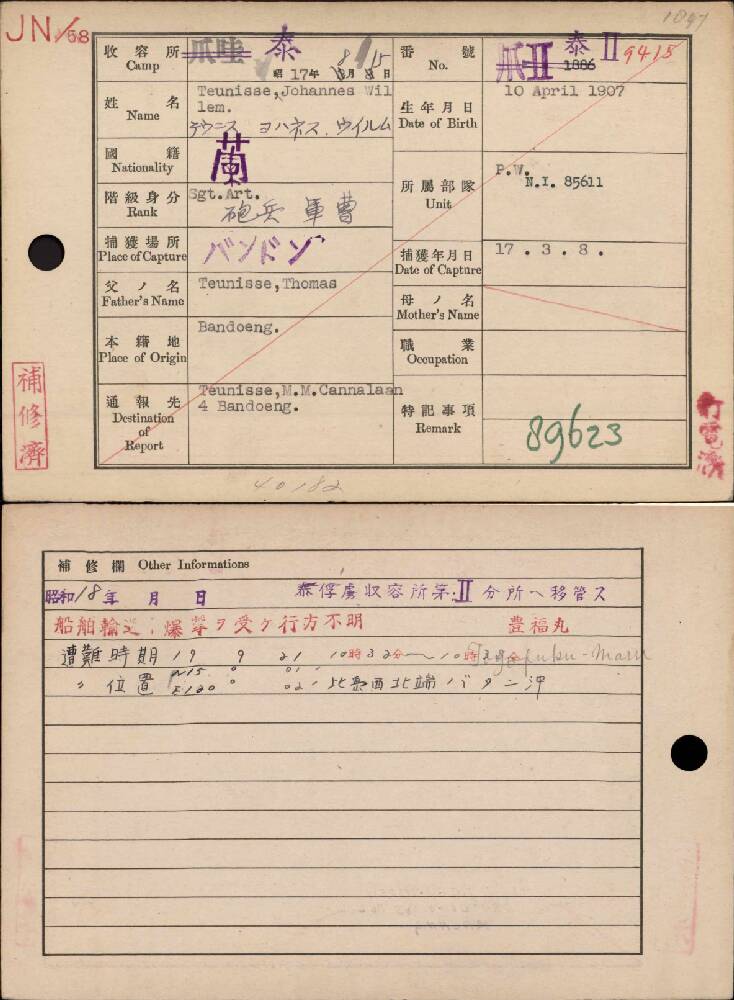 JN/58
1897
收容所 Camp
爪哇 泰
昭17年8月15日
番號 No.
爪II 1886 泰II 9415
姓名 Name
Teunisse,Johannes Wil
lem.
テウニス ヨハネス.ウイルム
生年月日 Date of Birth
10 April 1907
國籍 Nationality
蘭
所屬部隊 Unit
P.W.
N.I. 85611
階級身分 Rank
Sgt.Art.
砲兵 軍曹
捕獲場所 Place of Capture
バンドン
捕獲年月日 Date of Capture
17 . 3 . 8 .
父ノ名 Father's Name
Teunisse,Thomas
母ノ名 Mother's Name
本籍地 Place of Origin
Bandoeng.
職業 Occupation
通報先 Destination of Report
Teunisse,M.M.Cannalaan
4 Bandoeng.
特記事項 Remark
89623
補修濟
40182
補修欄 Other Informations
昭和18年 月 日 泰俘虜収容所第II分所ヘ移管ス
船舶輸送中爆撃ヲ受ケ行方不明 豊福丸
遭難時期 19 9 21 10時32分〜10時 Toyofuku-Maru
〃 位置 N15° E120° 02' 比島西北端バタン沖